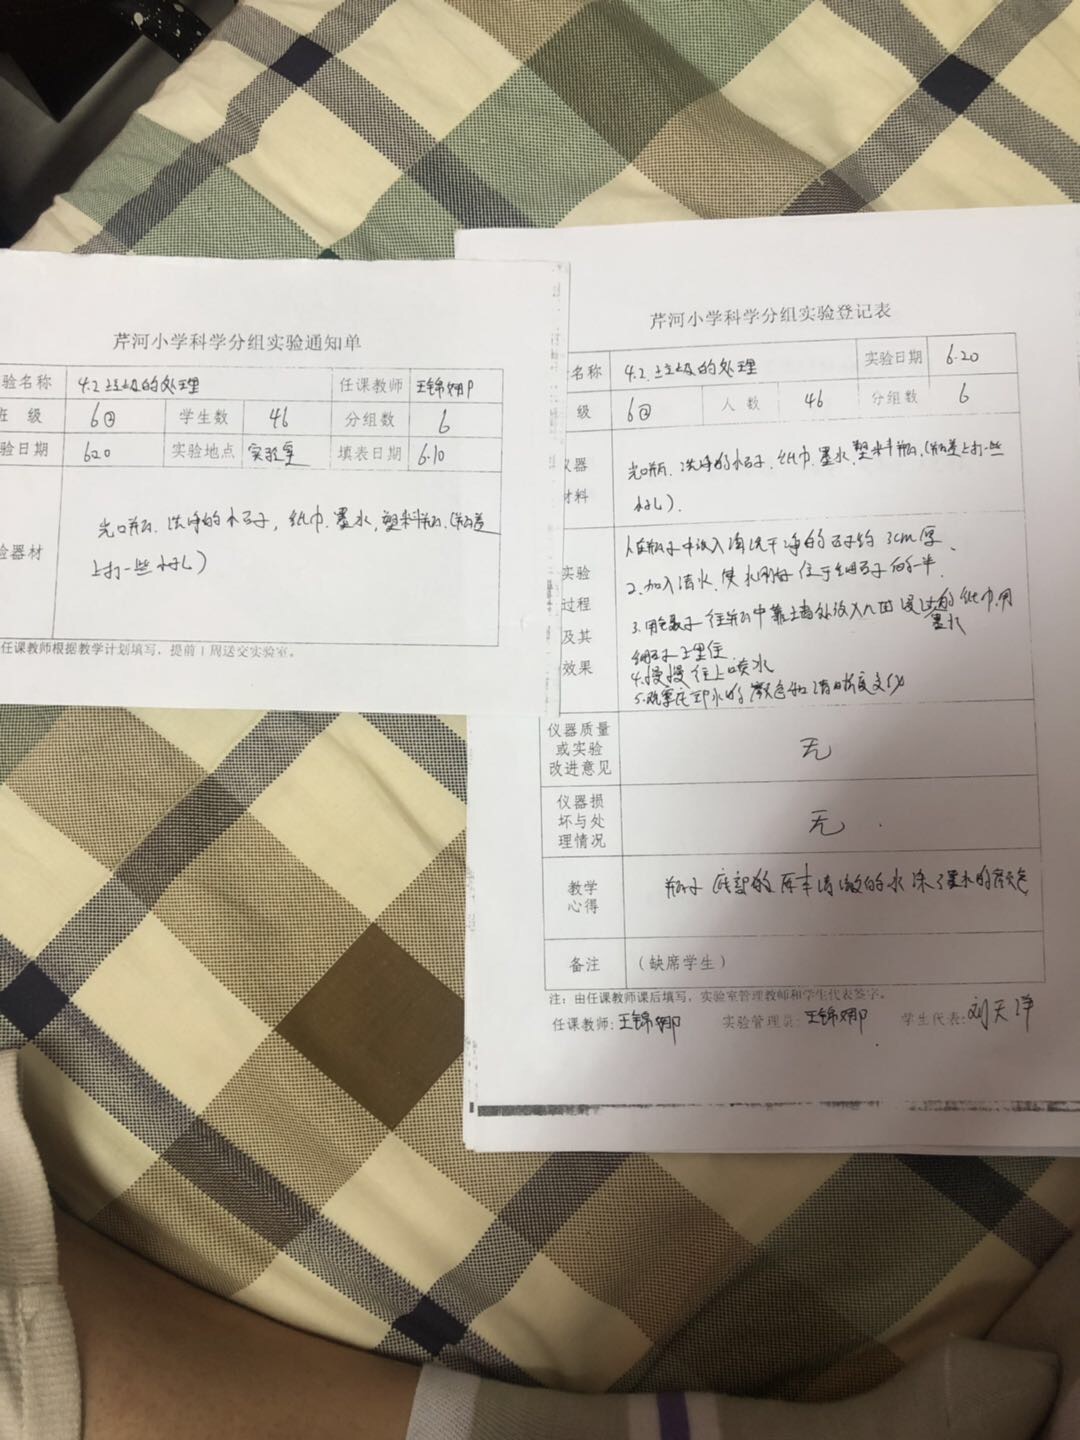 芹河小学科学分组实验通知单
验名称 4.2 垃圾的处理 任课教师 王锦娜
班 级 6④ 学生数 46 分组数 6
验日期 6.20 实验地点 实验室 填表日期 6.10
验器材
广口瓶、洗净的小石子,纸巾、墨水,塑料瓶、(瓶盖
上打一些小孔)
任课教师根据教学计划填写,提前1周送交实验室。
芹河小学科学分组实验登记表
名称 4.2 垃圾的处理 实验日期 6.20
级 6④ 人 数 46 分组数 6
仪器
材料
广口瓶、洗净的小石子、纸巾、墨水、塑料瓶、(瓶盖上打一些
小孔)。
实验
过程
及其
效果
1.在瓶子中放入清洗干净的石子约3cm厚、
2.加入清水、使水刚好位于细石子的一半.
3.用镊子往瓶中靠墙处放入几团浸过墨水的纸巾、用
细石子埋住
4.慢慢往上喷水
5.观察底部水的颜色和清晰度变化
仪器质量
或实验
改进意见
无
仪器损
坏与处
理情况
无
教学
心得
瓶子底部的原本清澈的水染了墨水的颜色
备注 (缺席学生)
注:由任课教师课后填写,实验室管理教师和学生代表签字。
任课教师: 王锦娜 实验管理员: 王锦娜 学生代表: 刘天洋